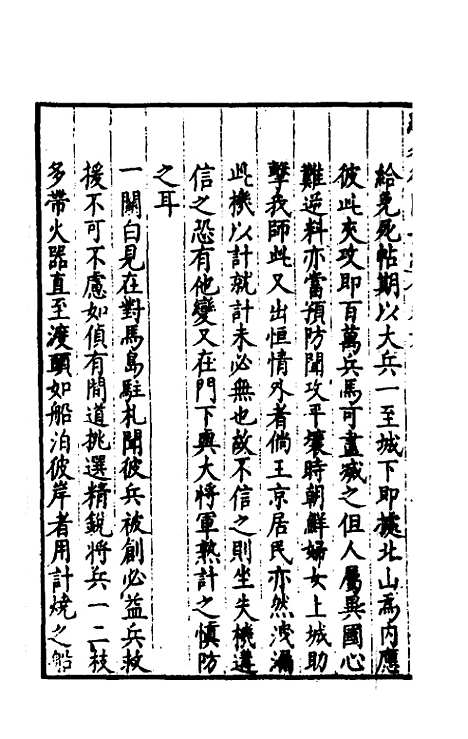 給免死帖期以大兵一至城下即據北山爲内應
彼此夾攻即百萬兵馬可盡滅之但人屬異國心
難逆料亦當預防聞攻平壤時朝鮮婦女上城助
擊我師此又出恒情外者倘王京居民亦然洩漏
此機以計就計未必無也故不信之則坐失機遘
信之恐有他變又在門下與大將軍熟計之慎防
之耳
一關白見在對馬島駐札聞彼兵被創必益兵救
援不可不慮如偵有間道挑選精銳將兵一二枝
多帶火器直至渡頭如船泊彼岸者用計燒之船